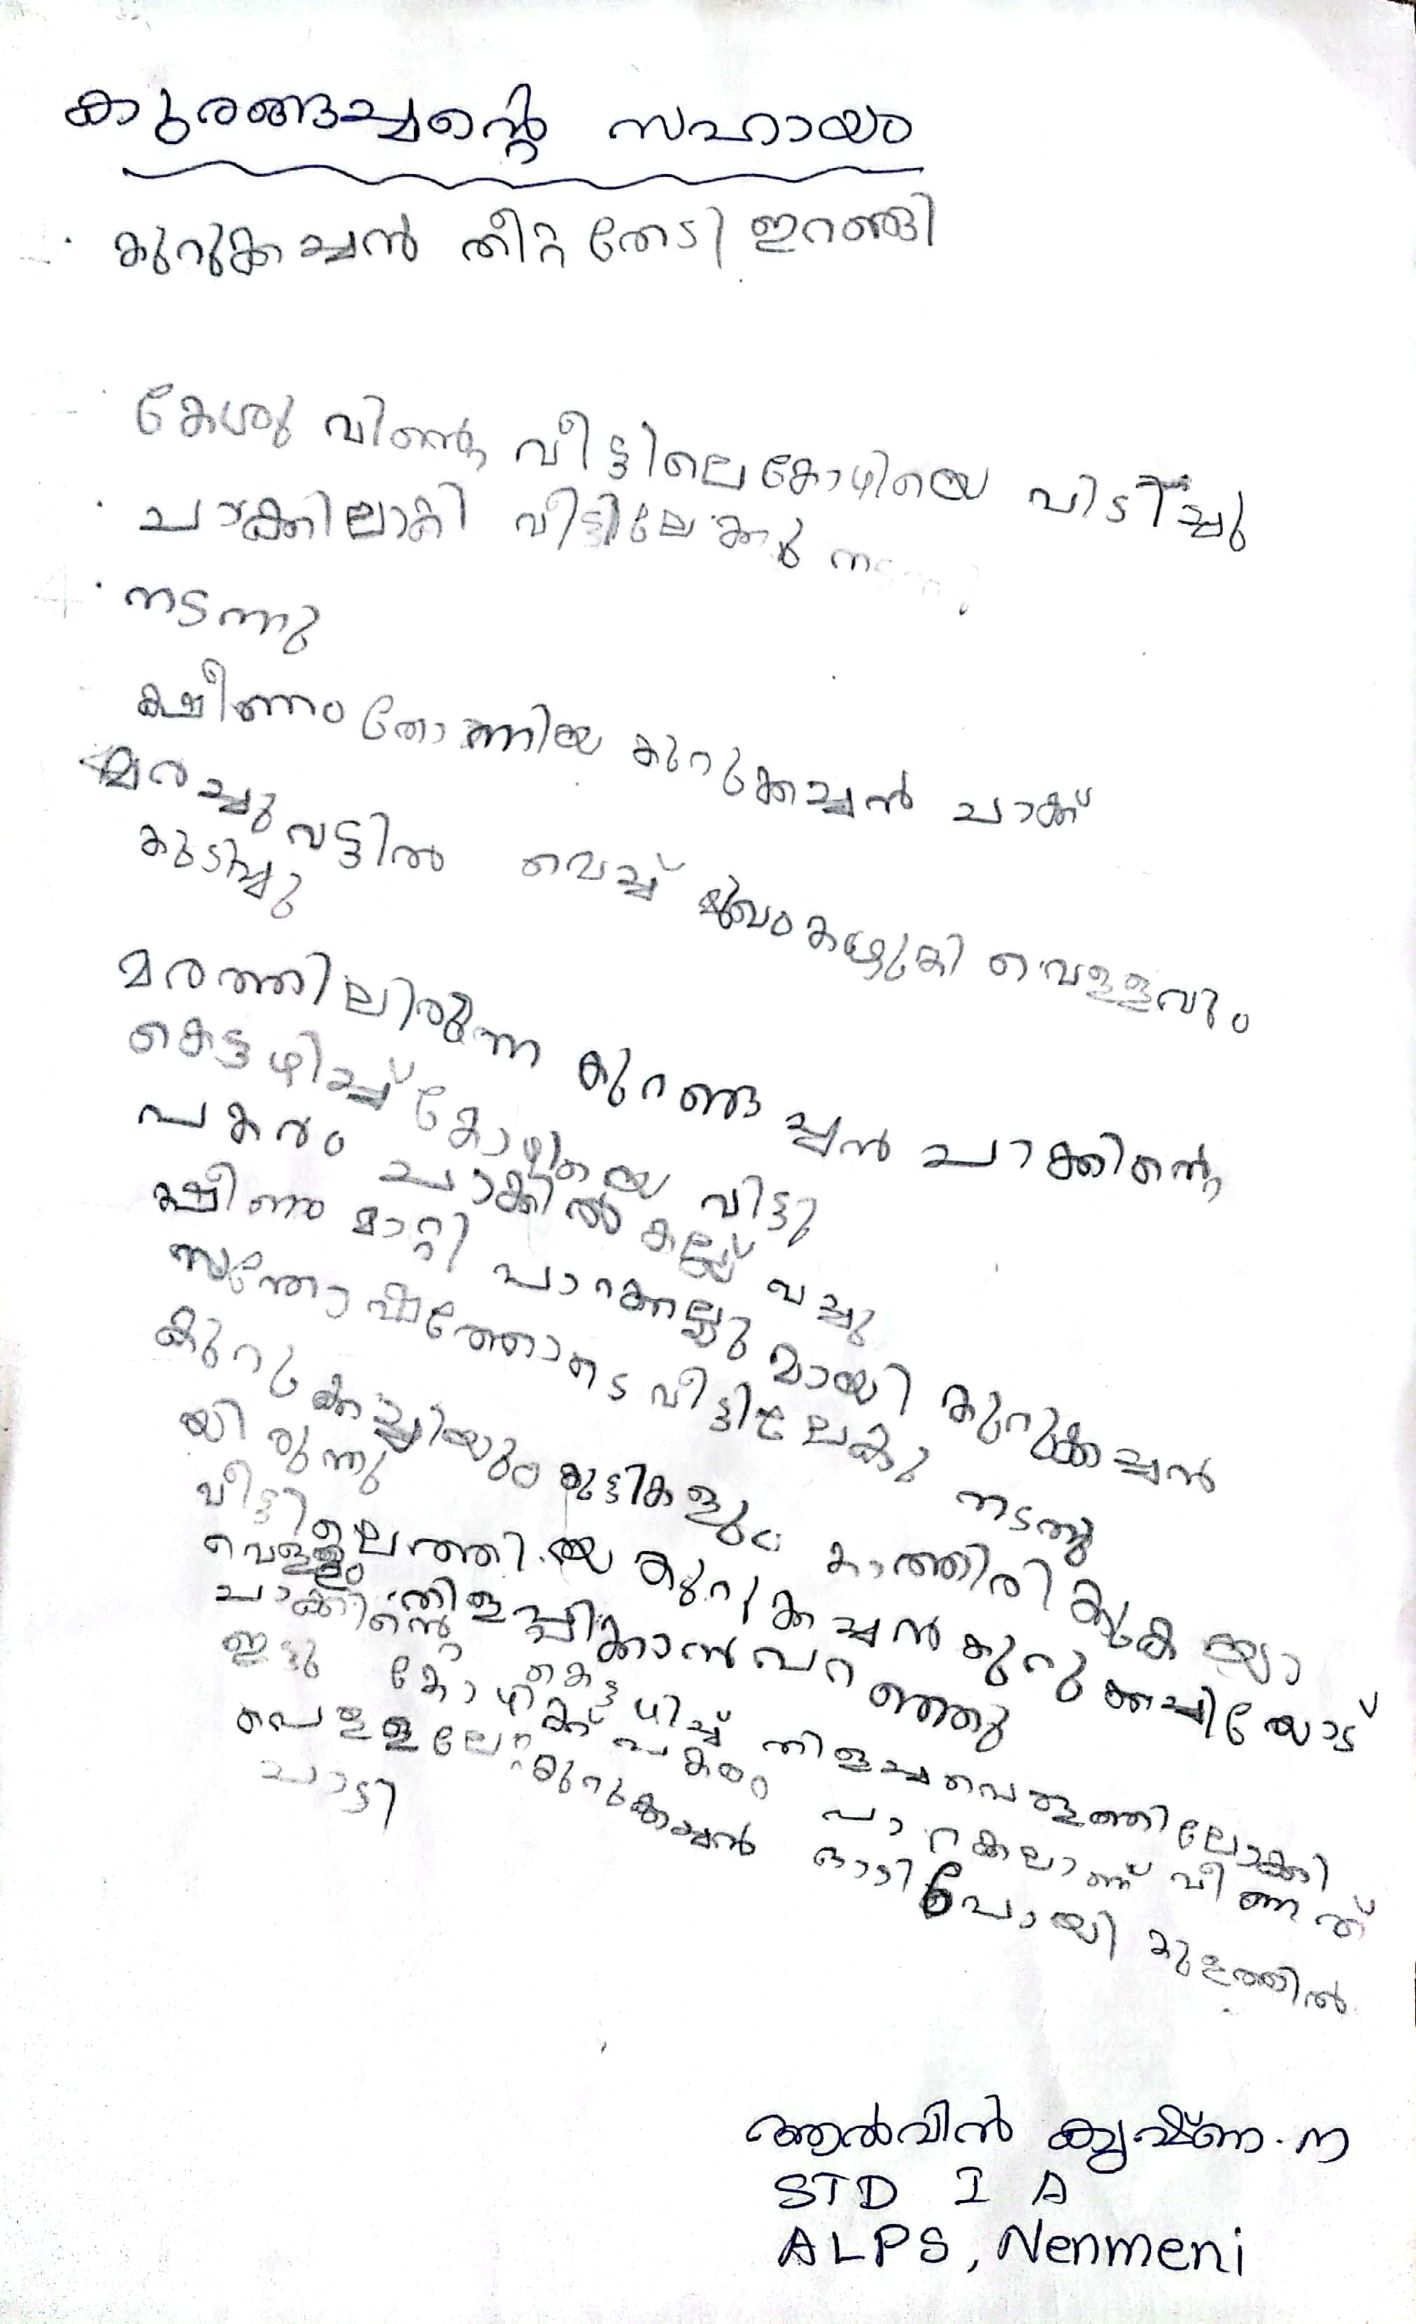 കുരങ്ങച്ചന്റെ സഹായം
കുറുക്കച്ചൻ തീറ്റ തേടി ഇറങ്ങി
കേശു വിന്റെ വീട്ടിലെ കോഴിയെ പിടിച്ചു
ചാക്കിലാക്കി വീട്ടിലേക്കു നടന്നു
നടന്നു
ക്ഷീണം തോന്നിയ കുറുക്കച്ചൻ ചാക്ക്
മരച്ചുവട്ടിൽ വെച്ച് മുഖം കഴുകി വെള്ളവും
കുടിച്ചു
മരത്തിലിരുന്ന കുറങ്ങ ച്ചൻ ചാക്കിന്റെ
കെട്ടഴിച്ച് കോഴിയെ വിട്ടു
പകരം ചാക്കിൽ കല്ല് വച്ചു
ക്ഷീണം മാറ്റി പാറക്കല്ലു മായി കുറുക്കച്ചൻ
സന്തോഷത്തോടെ വീട്ടിലേകു നടന്നു
കുറുക്കച്ചിയും കുട്ടികളും കാത്തിരിക്കുക യാ
യിരുന്നു
വീട്ടിലെത്തിയ കുറുക്കച്ചൻ കുറുക്കച്ചിയോട്
വെള്ളം തിളപ്പിക്കാൻ പറഞ്ഞു
ചാക്കിന്റെ കെട്ടഴിച്ച് തിളച്ചവെള്ളത്തിലോക്കി
ഇട്ടു കോഴിക്ക് പകരം പാറക്കലാണ് വീണത്
കുറുക്കച്ചൻ ഓടി പോയി കുളത്തിൽ
ചാടി
ആൽവിൻ കൃഷ്ണ. ന
STD I A
ALPS, Nenmeni